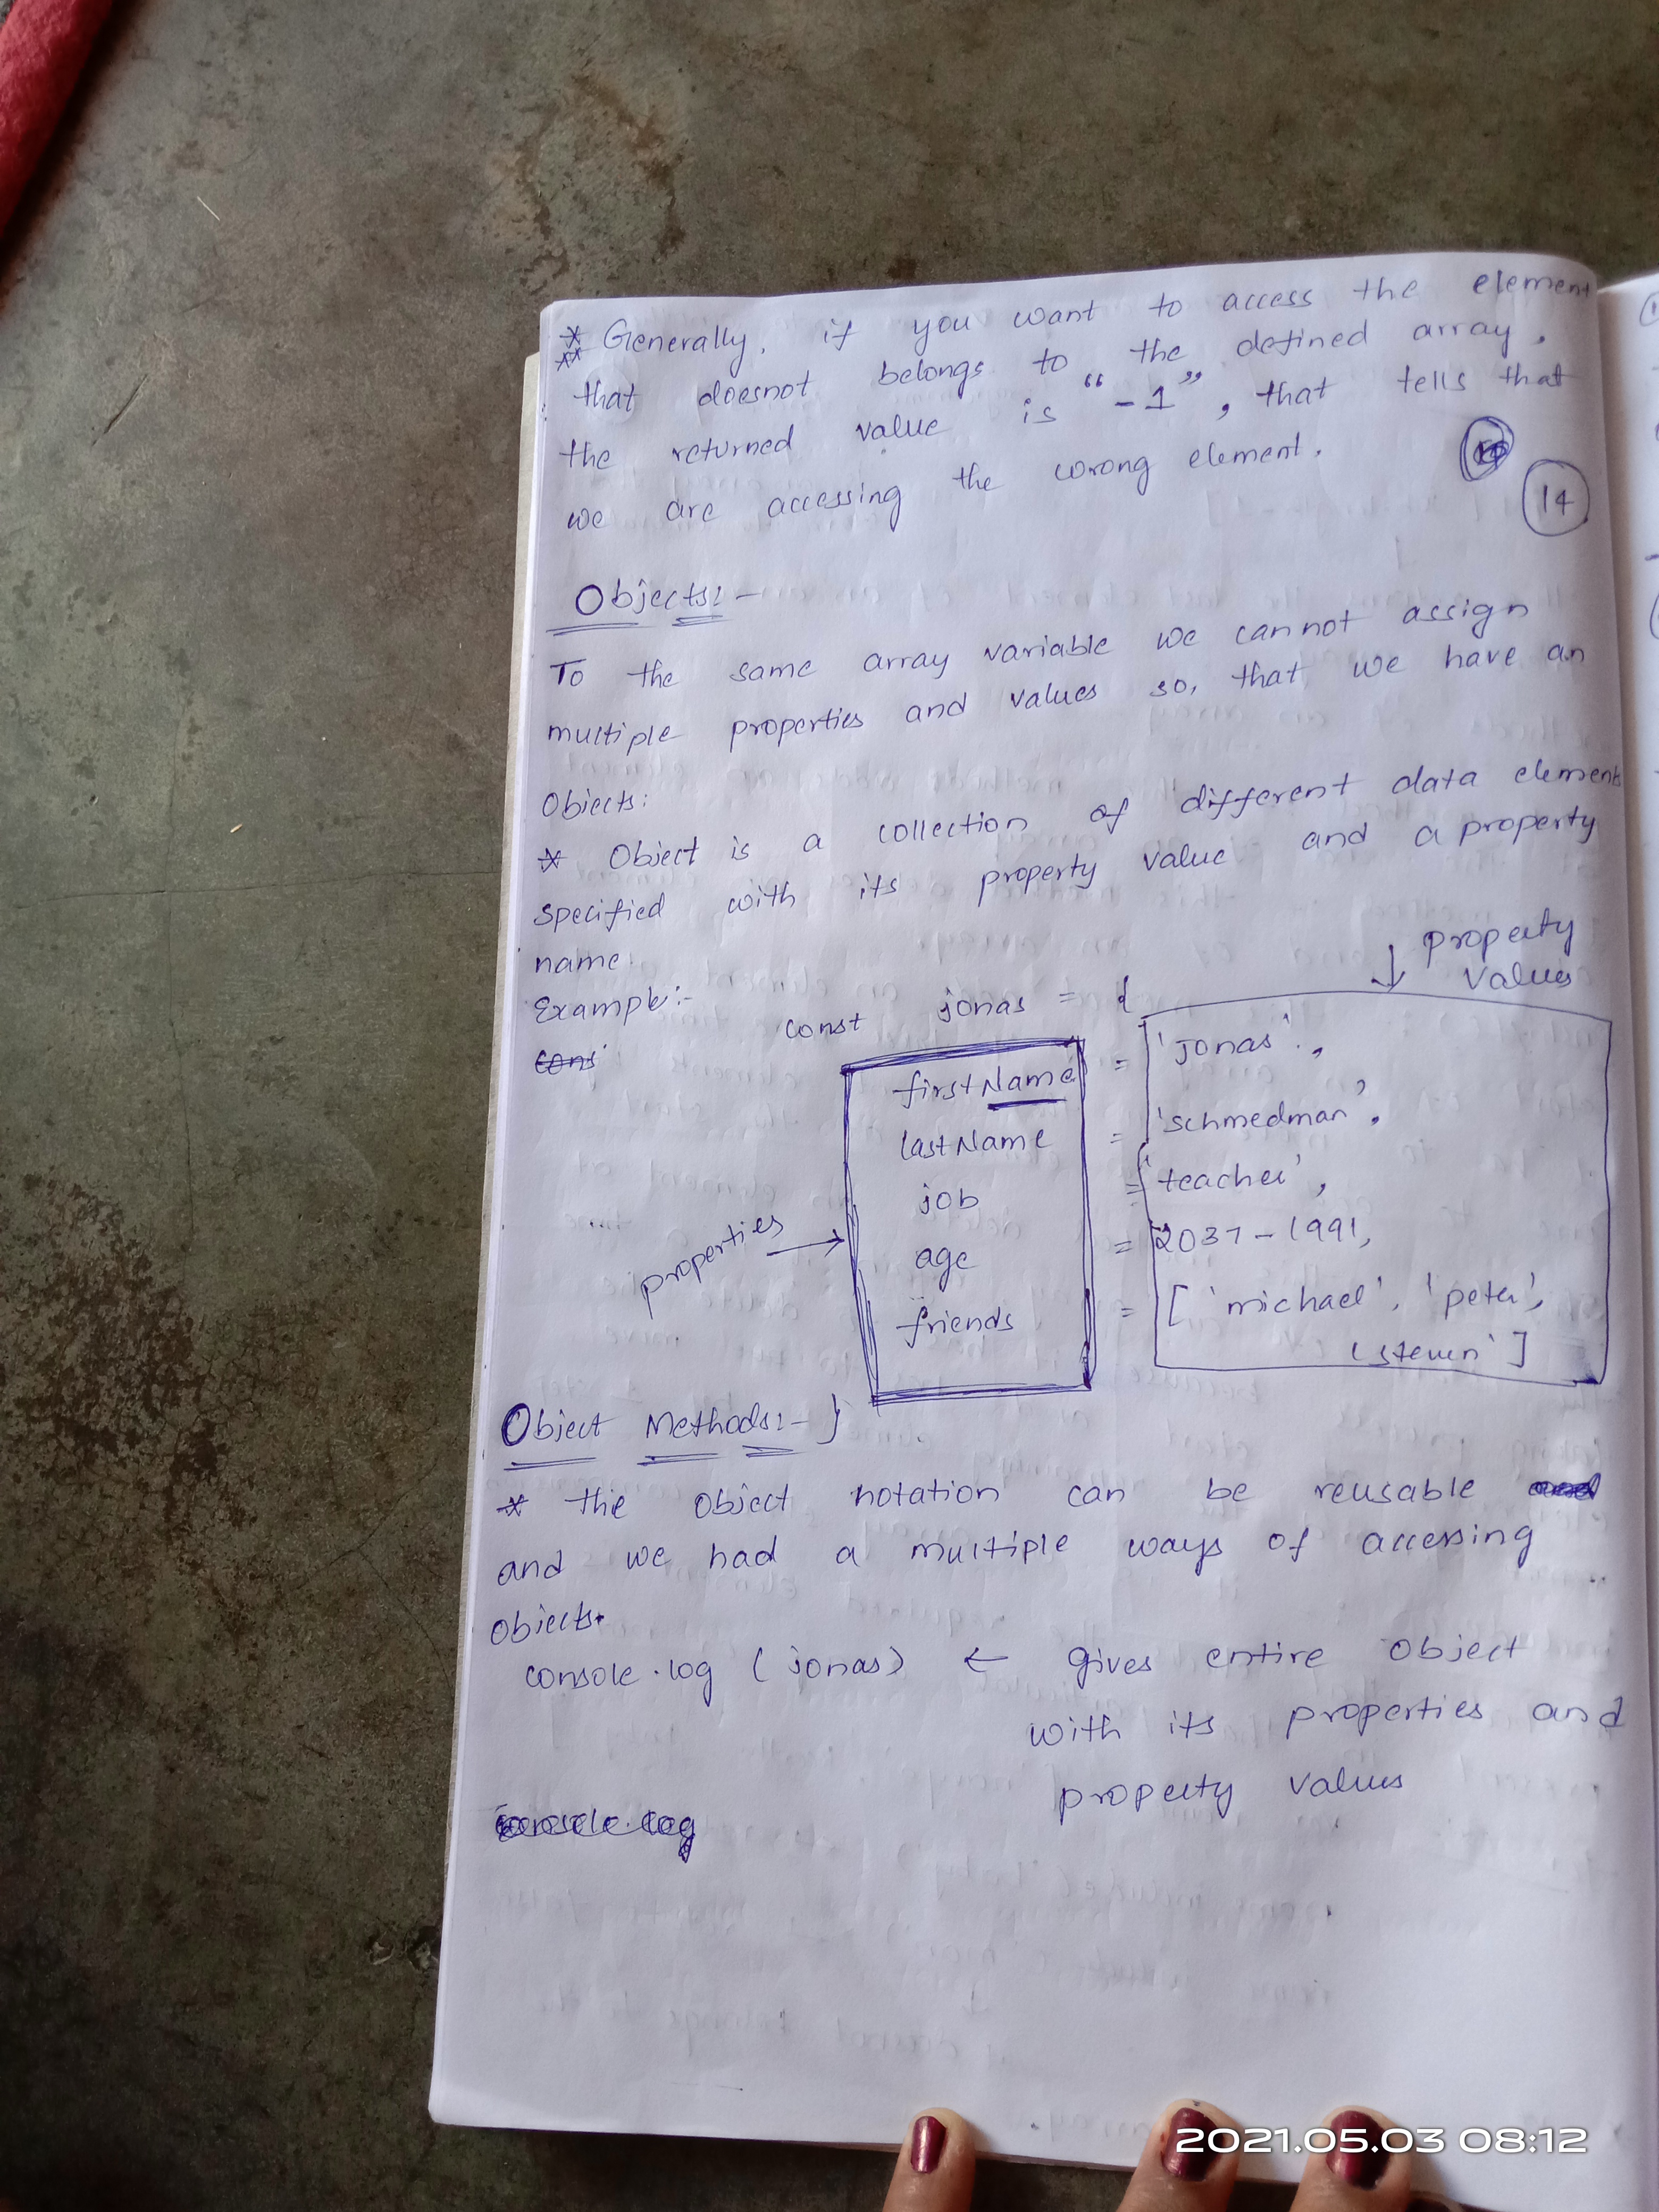 * Generally, if you want to access the element
** that doesnot belongs to the defined array,
the returned value is "-1", that tells that
we are accessing the wrong element.
14
Objects:-
To the same array variable we cannot assign
multiple properties and values so, that we have an
Objects:
* Object is a collection of different data elements
specified with its property value and a property
name.
property
values
Example:-
const jonas = {
firstName = 'jonas',
lastName = 'schmedman',
job = 'teacher',
properties → age = 2037-1991,
friends = ['michael', 'peter',
'steven']
Object Methods:- }
* the object notation can be reusable
and we had a multiple ways of accessing
objects.
console.log (jonas) ← gives entire object
with its properties and
property values
console.log
2021.05.03 08:12